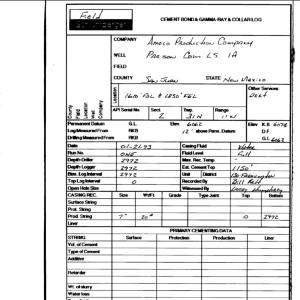 Field
Schlumberger
CEMENT BOND & GAMMA-RAY & COLLAR LOG
COMPANY Amoco Production Company
WELL Com LS 1A
FIELD
COUNTY San Juan STATE New Mexico
Location
1610' FSL & 1850' FEL
Other Services:
API Serial No. Sect. Twp. Range
2 31N 11W
County
Field
Location
Well
Company
Permanent Datum G.L. Elev. 6062 Elev. K.B. 6074
Log Measured From RKB 12' above Perm. Datum D.F.
Drilling Measured From RKB G.L. 6062
Date 01-21-93 Casing Fluid Water
Run No. ONE Fluid Level Full
Depth Driller 2972 Max. Rec. Temp. -
Depth Logger 2972 Est. Cement Top 1150'
Btm. Log Interval 2972 Unit District Farmington
Top Log Interval 0 Recorded By Bill
Open Hole Size Witnessed By Humphrey
CASING REC. Size Wt/Ft Grade Type Joint Top Bottom
Surface String
Prot. String
Prod. String 7" 20# 0 2972
Liner
PRIMARY CEMENTING DATA
STRING Surface Protection Production Liner
Vol. of Cement
Type of Cement
Additive
Retarder
Wt. of slurry
Water loss